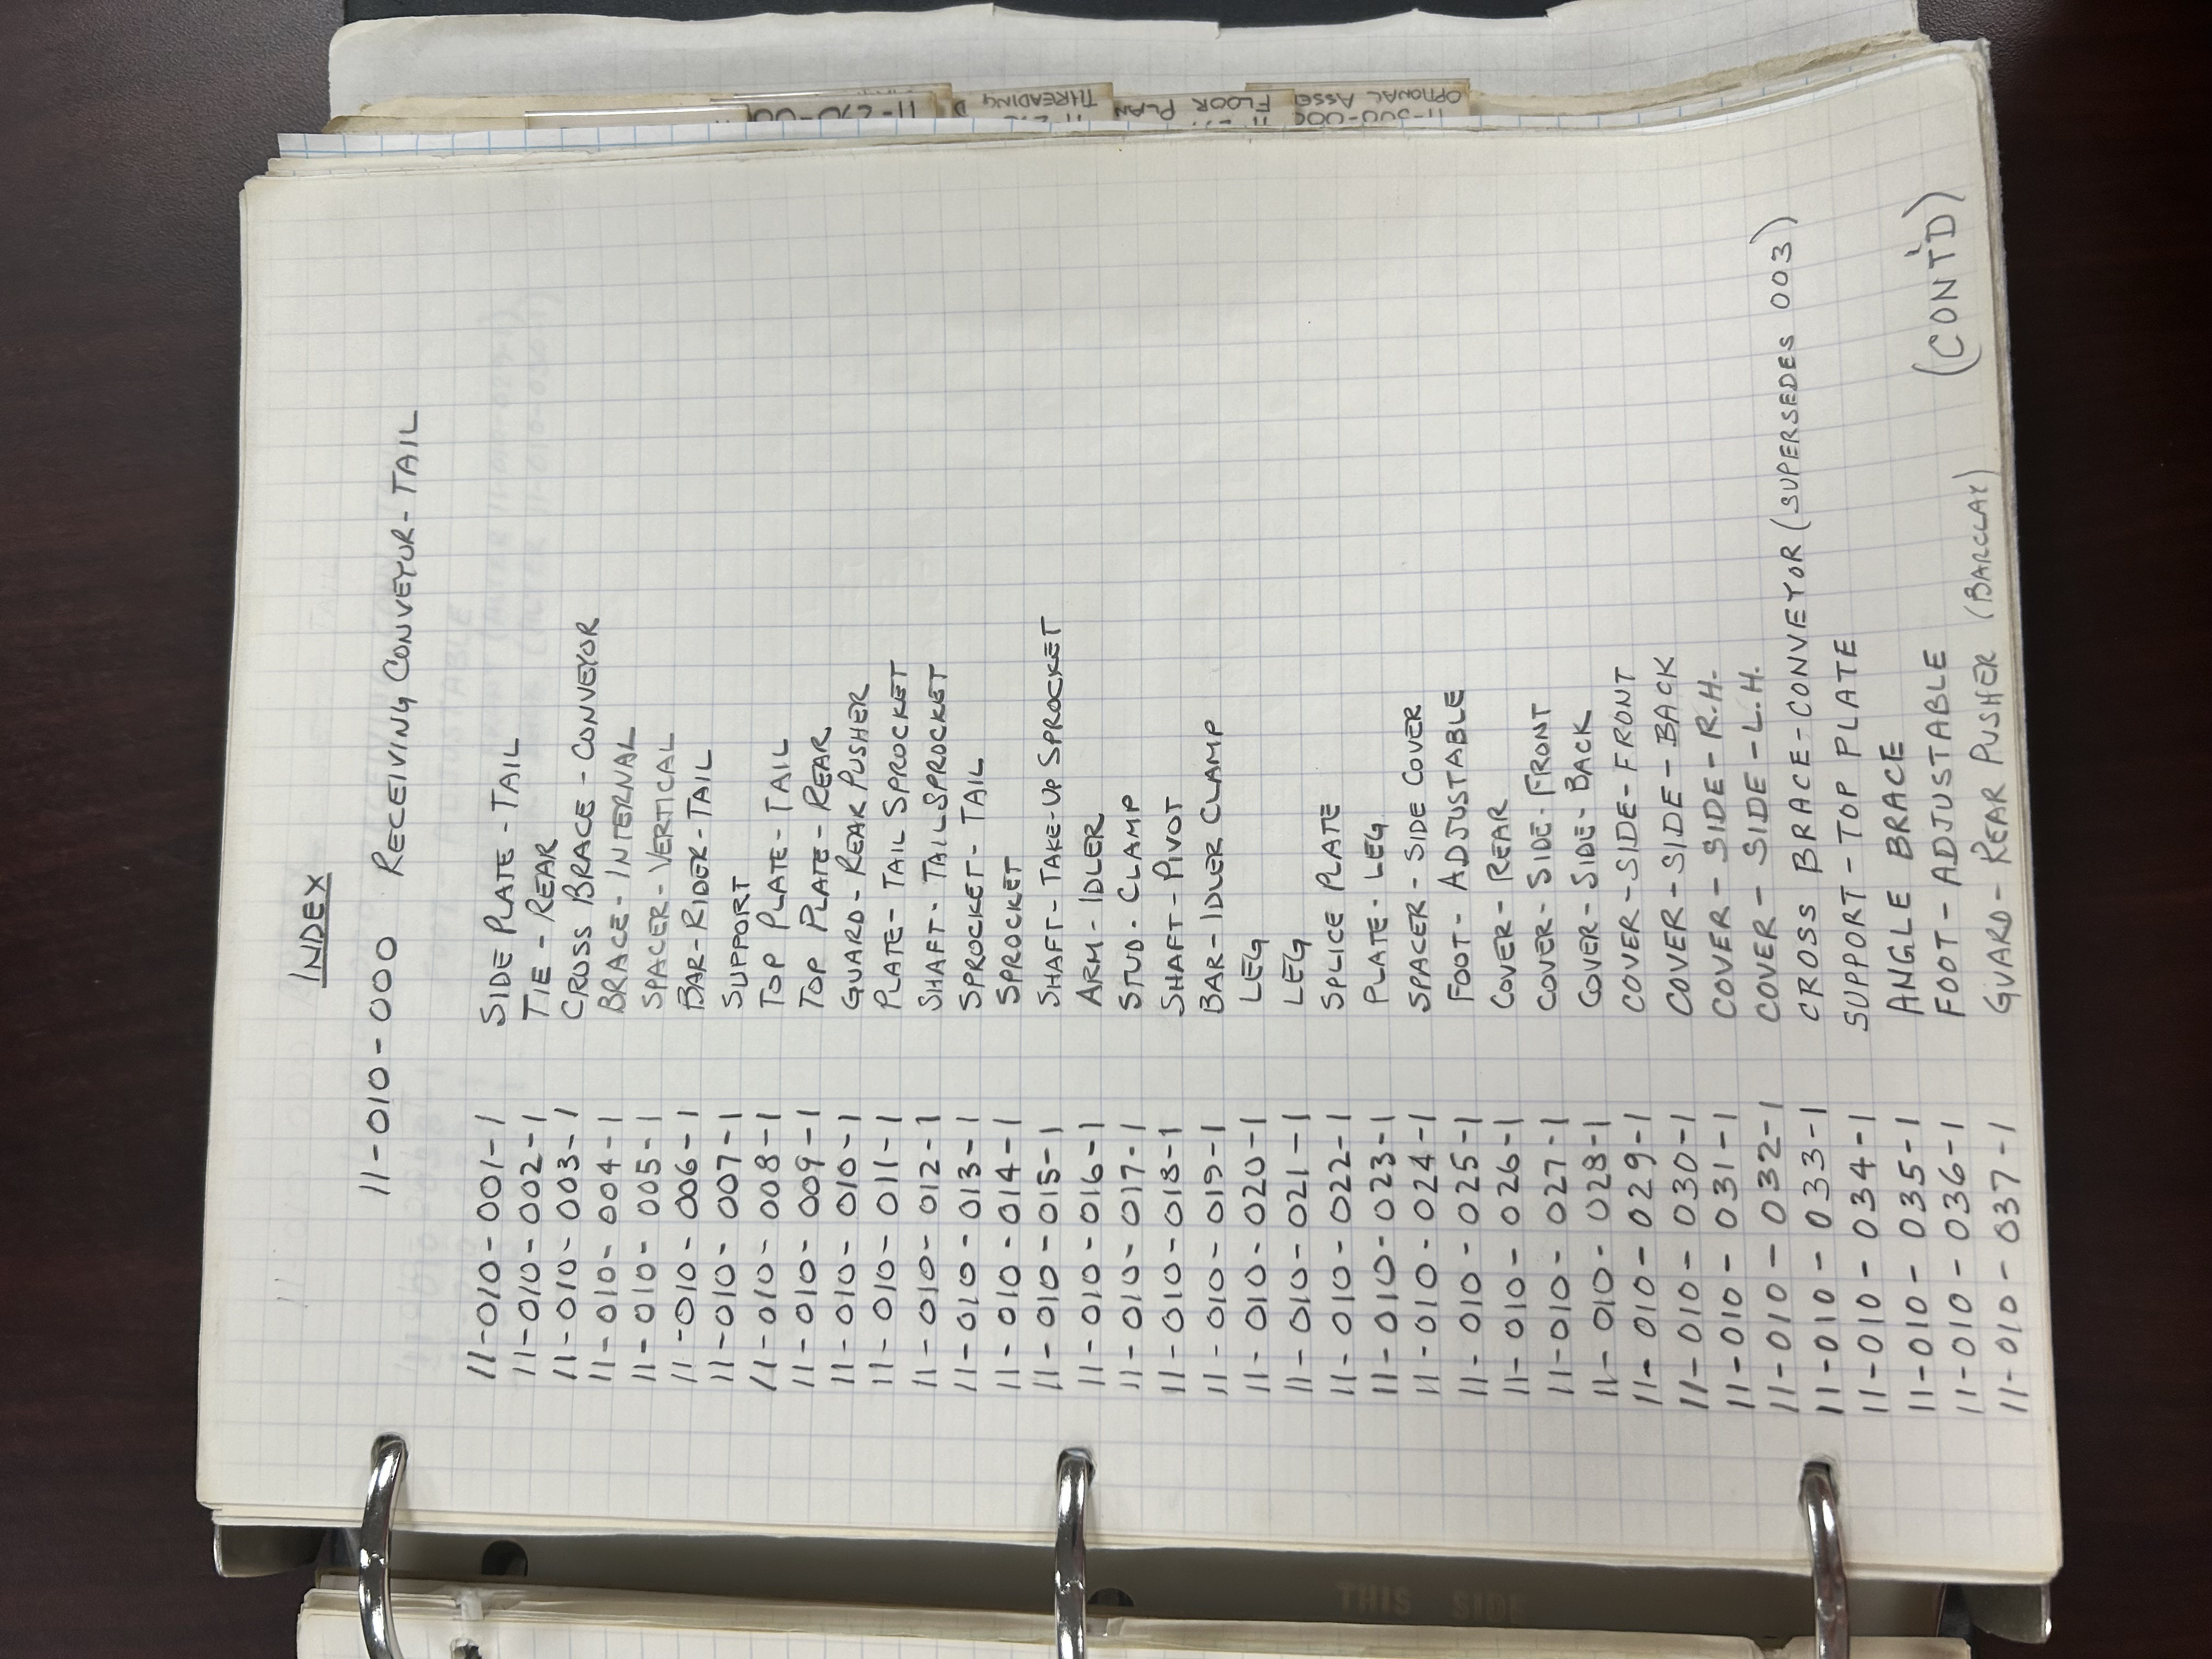 INDEX
11-010-000 RECEIVING CONVEYOR-TAIL
11-010-001-1 SIDE PLATE-TAIL
11-010-002-1 TIE-REAR
11-010-003-1 CROSS BRACE-CONVEYOR
11-010-004-1 BRACE-INTERNAL
11-010-005-1 SPACER-VERTICAL
11-010-006-1 BAR-RIDER-TAIL
11-010-007-1 SUPPORT
11-010-008-1 TOP PLATE-TAIL
11-010-009-1 TOP PLATE-REAR
11-010-010-1 GUARD-REAR PUSHER
11-010-011-1 PLATE-TAIL SPROCKET
11-010-012-1 SHAFT-TAIL SPROCKET
11-010-013-1 SPROCKET-TAIL
11-010-014-1 SPROCKET
11-010-015-1 SHAFT-TAKE-UP SPROCKET
11-010-016-1 ARM-IDLER
11-010-017-1 STUD-CLAMP
11-010-018-1 SHAFT-PIVOT
11-010-019-1 BAR-IDLER CLAMP
11-010-020-1 LEG
11-010-021-1 LEG
11-010-022-1 SPLICE PLATE
11-010-023-1 PLATE-LEG
11-010-024-1 SPACER-SIDE COVER
11-010-025-1 FOOT-ADJUSTABLE
11-010-026-1 COVER-REAR
11-010-027-1 COVER-SIDE-FRONT
11-010-028-1 COVER-SIDE-BACK
11-010-029-1 COVER-SIDE-FRONT
11-010-030-1 COVER-SIDE-BACK
11-010-031-1 COVER-SIDE-R.H.
11-010-032-1 COVER-SIDE-L.H.
11-010-033-1 CROSS BRACE-CONVEYOR (SUPERSEDES 003)
11-010-034-1 SUPPORT-TOP PLATE
11-010-035-1 ANGLE BRACE
11-010-036-1 FOOT-ADJUSTABLE
11-010-037-1 GUARD-REAR PUSHER (BARCLAY)
(CONT'D)
THREADING
FLOOR PLAN
OPTIONAL
THIS SIDE